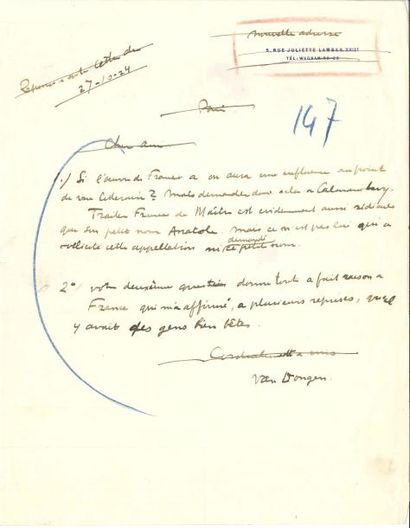 nouvelle adresse
5, RUE JULIETTE LAMBER, XVII
TÉL: WAGRAM
Réponse à votre lettre du
27-10-24
147
Paris
Cher ami
1.) Si l'œuvre de France a ou aura une influence au point
de vue littéraire? Mais demandez donc cela à Calmann Levy.
Traiter France de Maître est évidemment aussi ridicule
que son petit nom Anatole. Mais ce n'est pas lui qui a
sollicité cette appellation ni demandé ce petit nom.
2° votre deuxième question donne tout a fait raison a
France qui m'a affirmé, a plusieurs reprises, qu'il
y avait des gens bien bêtes.
Cordialement a vous
Van Dongen.